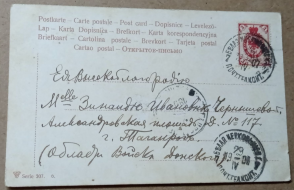 Postkarte – Carte postale – Post card – Dopisnica – Levelező-
Lap – Kartą Dopis – Brefkort – Karta korespondencyjna
Briefkaart – Cartolina postale – Brevkort – Tarjeta postal
Cartao postal – Открытое письмо
Ея Высокоблагородію
Mlle Зинаидѣ Ивановнѣ Чернышовой
Александровская площадь д. № 117.
г. Таганрогъ
(Область Войска Донского)
Serie 337